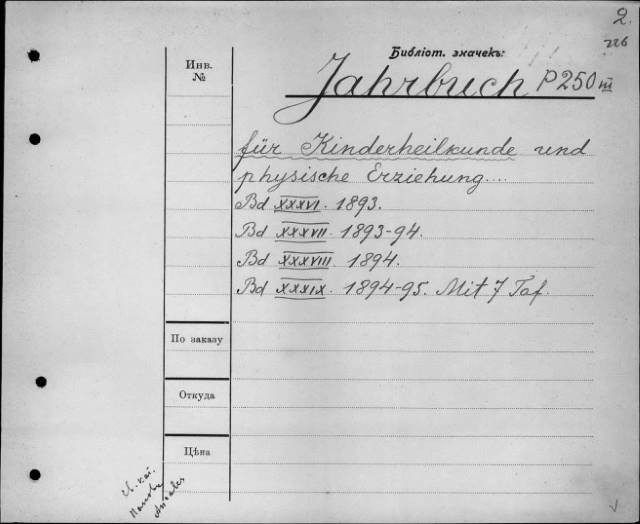 2.
226
Библіот. значекъ:
Инв.
№
Jahrbuch P 250 III
für Kinderheilkunde und
physische Erziehung....
Bd XXXVI. 1893.
Bd XXXVII. 1893-94.
Bd XXXVIII. 1894.
Bd XXXIX. 1894-95. Mit 7 Taf.
По заказу
Откуда
Цѣна